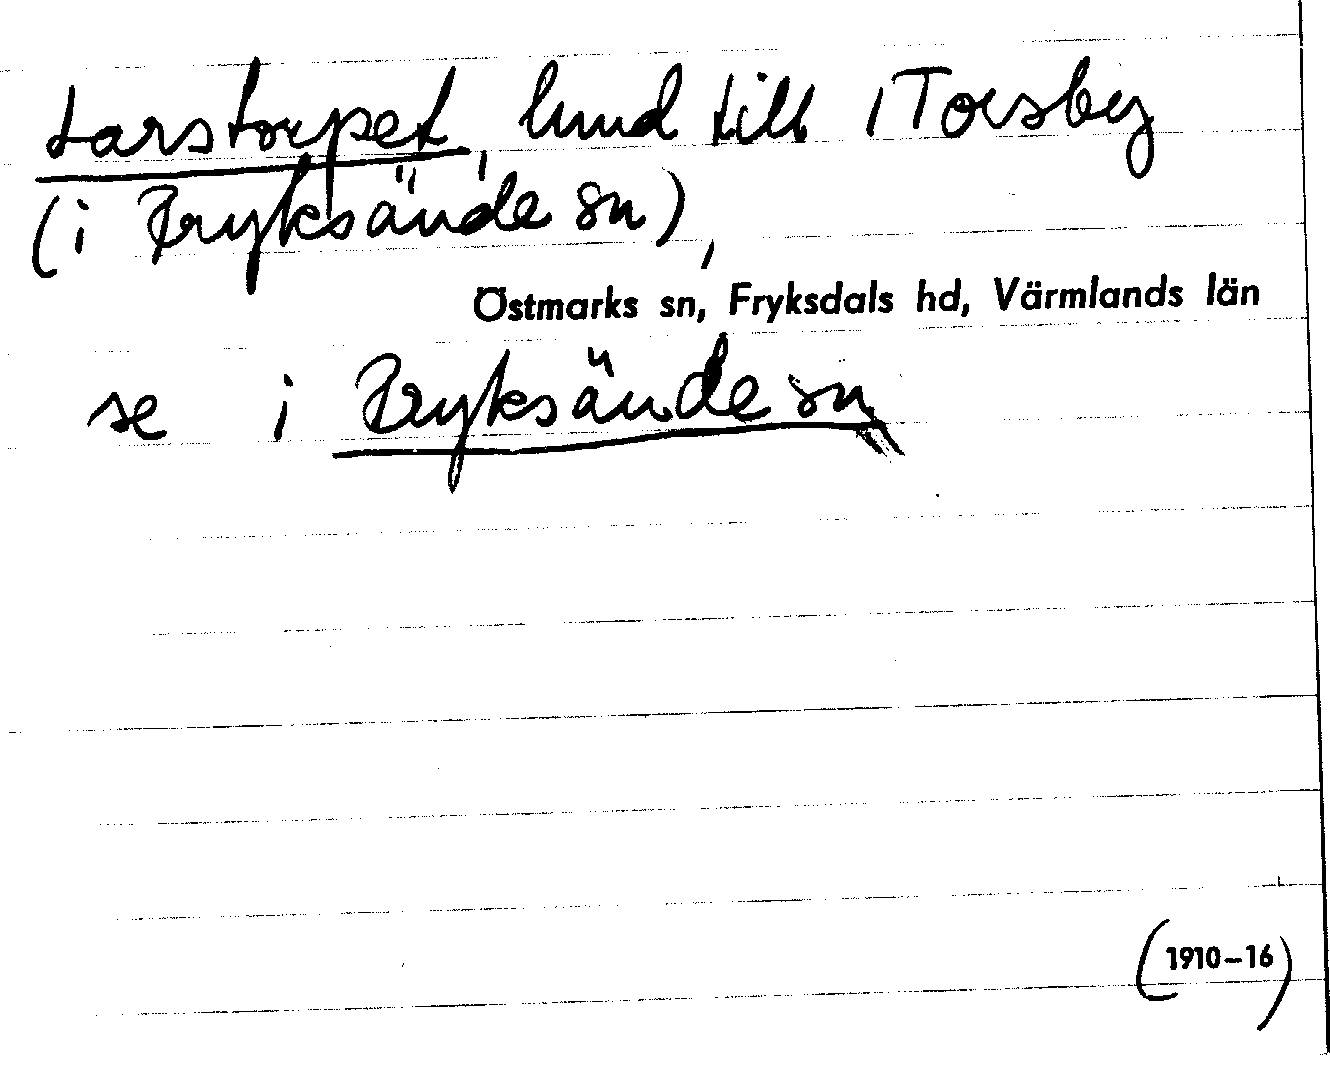 Larstorpet, lund till 1 Torsby
(i Fryksände sn),
Östmarks sn, Fryksdals hd, Värmlands län
se i Fryksände sn
(1910–16)